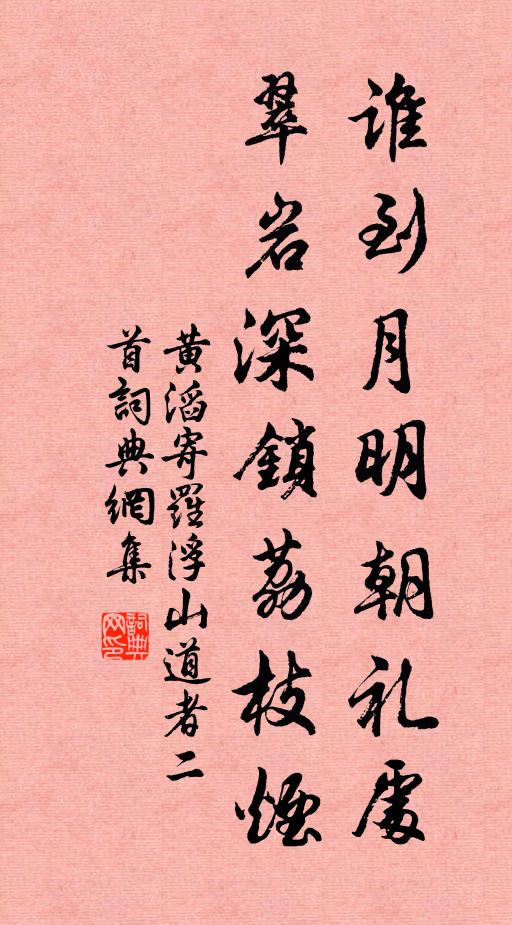 谁到月明朝礼處
翠岩深鎖荔枝煙
黄滔寄羅浮山道者二
首詞典網集
詞典网印